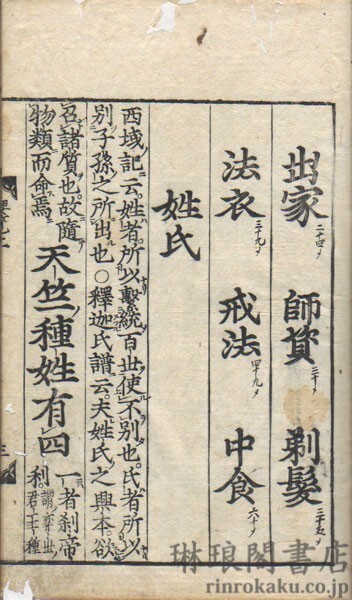 出家二十四ヲ 師資三十ヲ 剃髪三十五ヲ
法衣三十九ヲ 戒法四十九ヲ 中食六十ヲ
姓氏
西域記云姓者所以繫統百世使不別也氏者所以
別子孫之所出也○釋迦氏譜云夫姓氏之興本欲
召諸質也故隨
物類而命焉
天竺種姓有四
一者刹帝
利謂奕世
君王種
三
琳琅閣書店
rinrokaku.co.jp